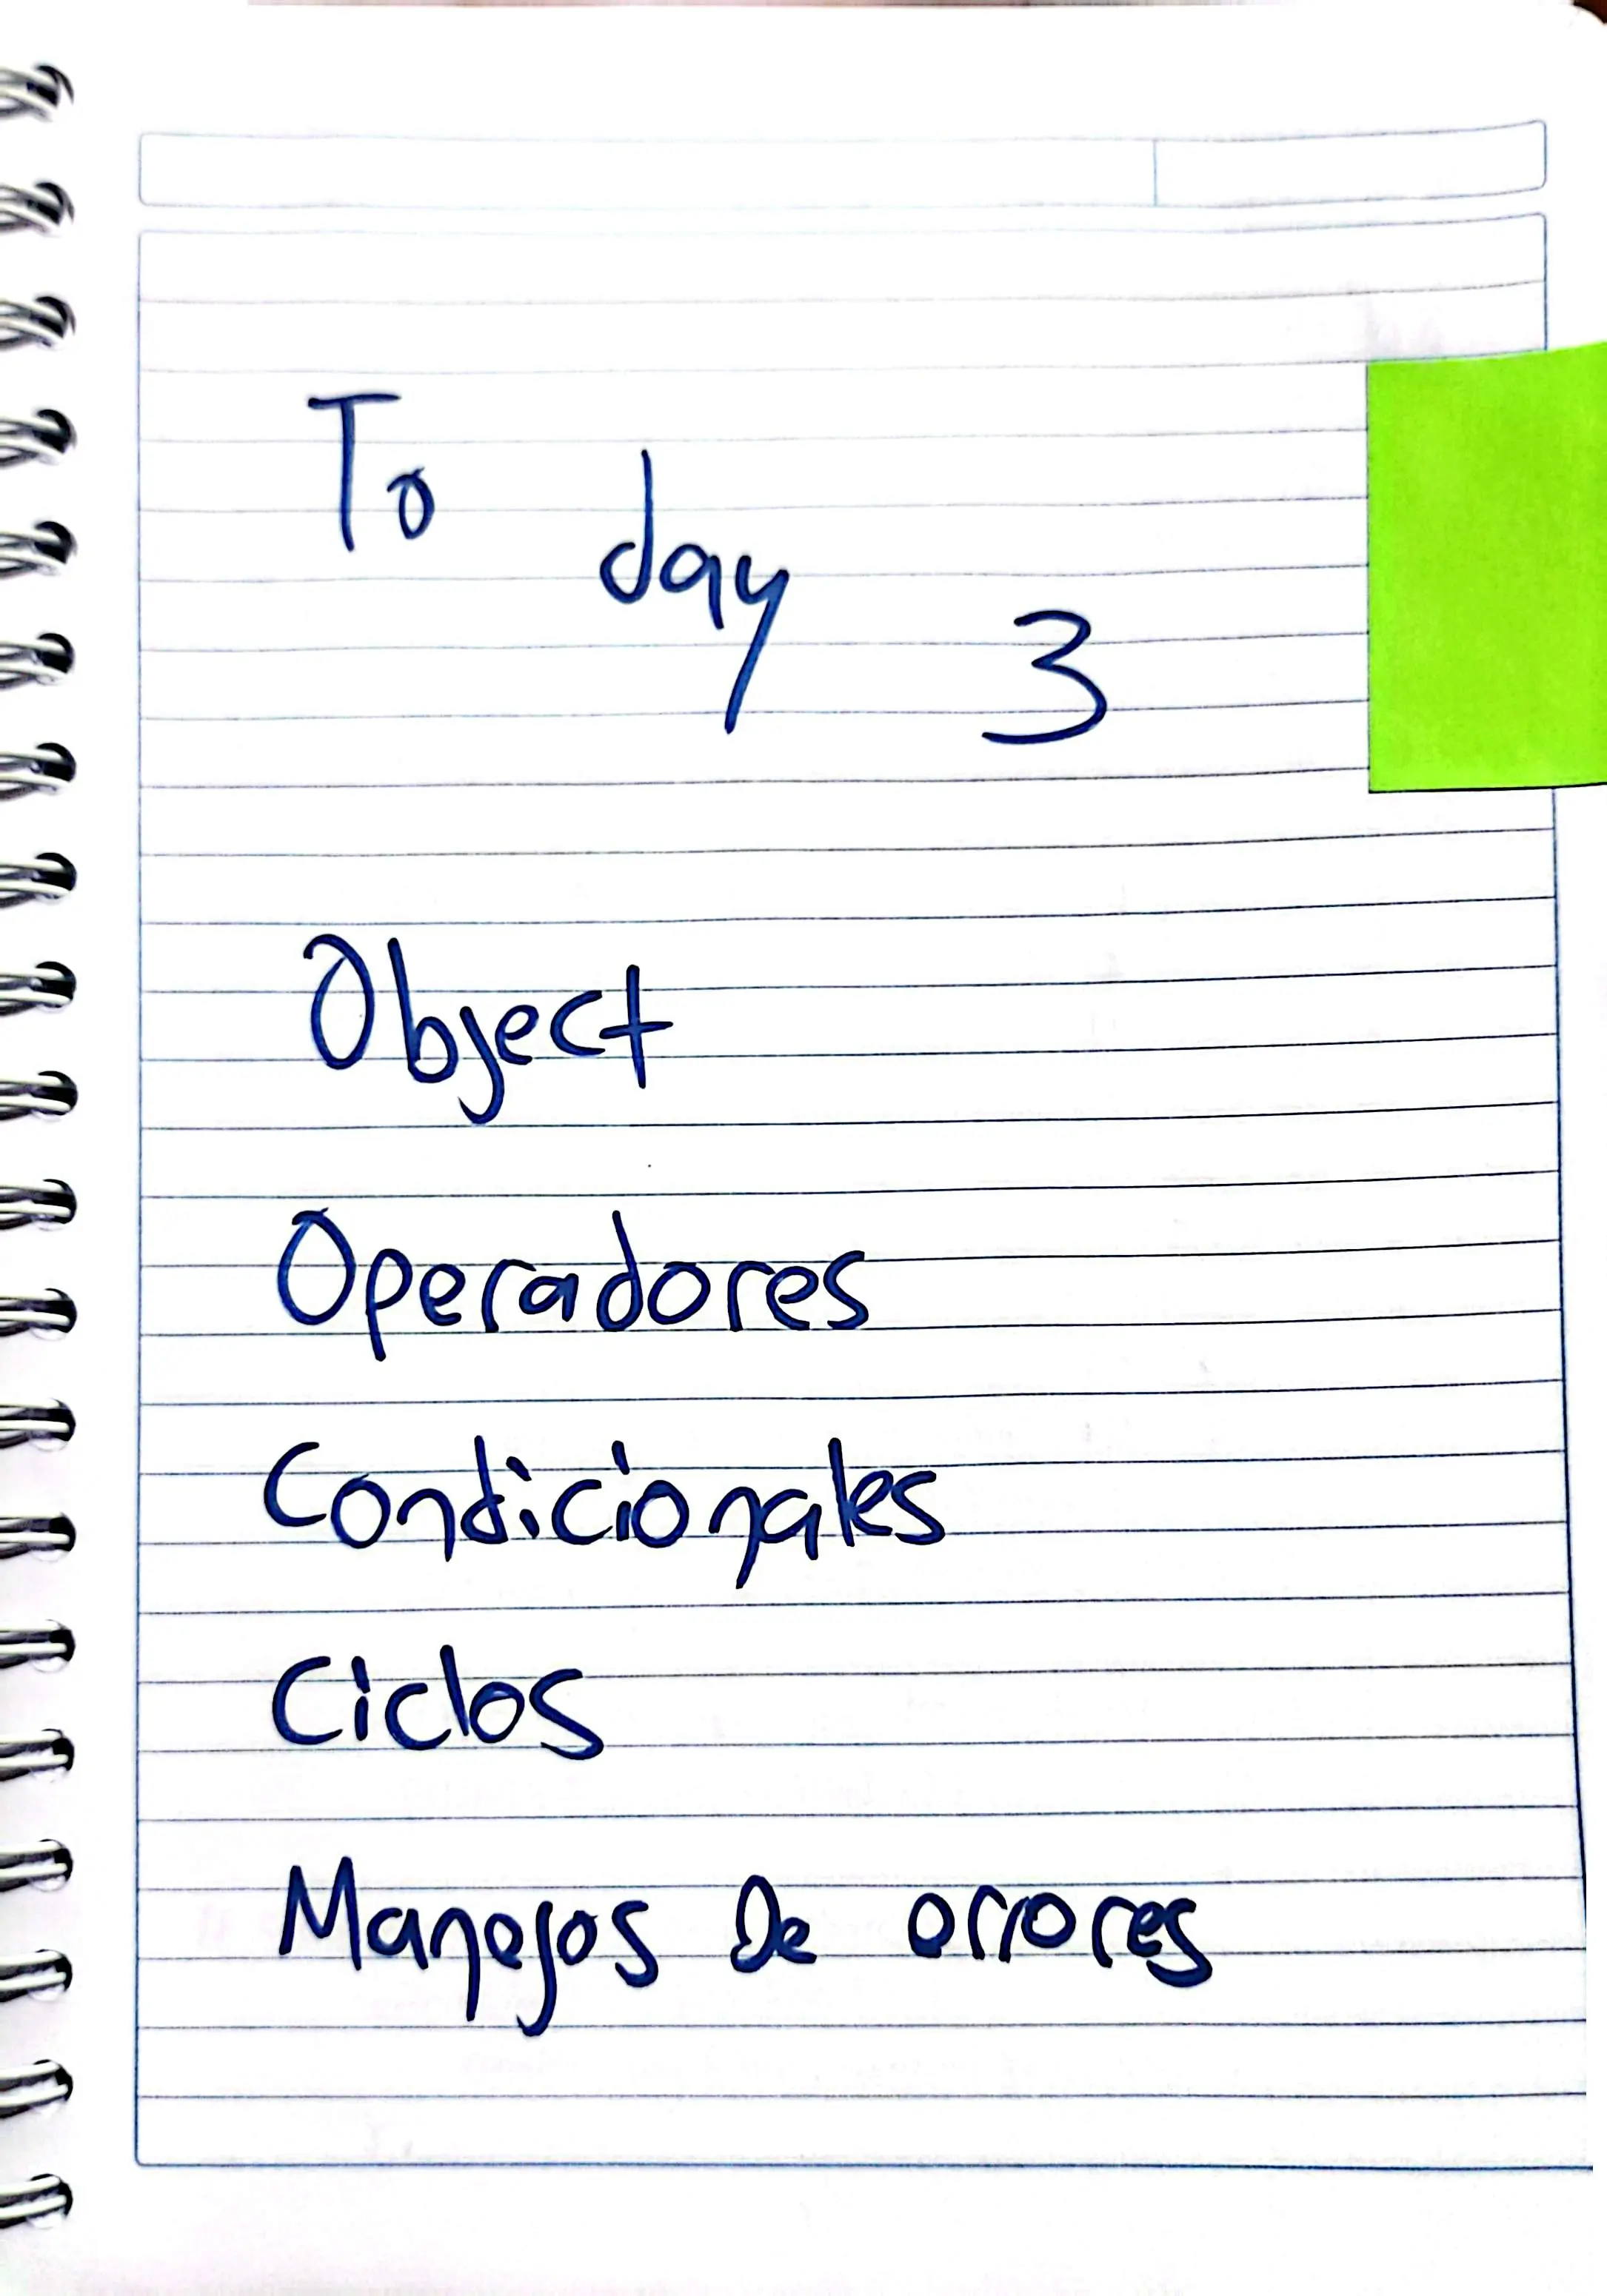 To day 3
Object
Operadores
Condicionales
Ciclos
Manejos De errores